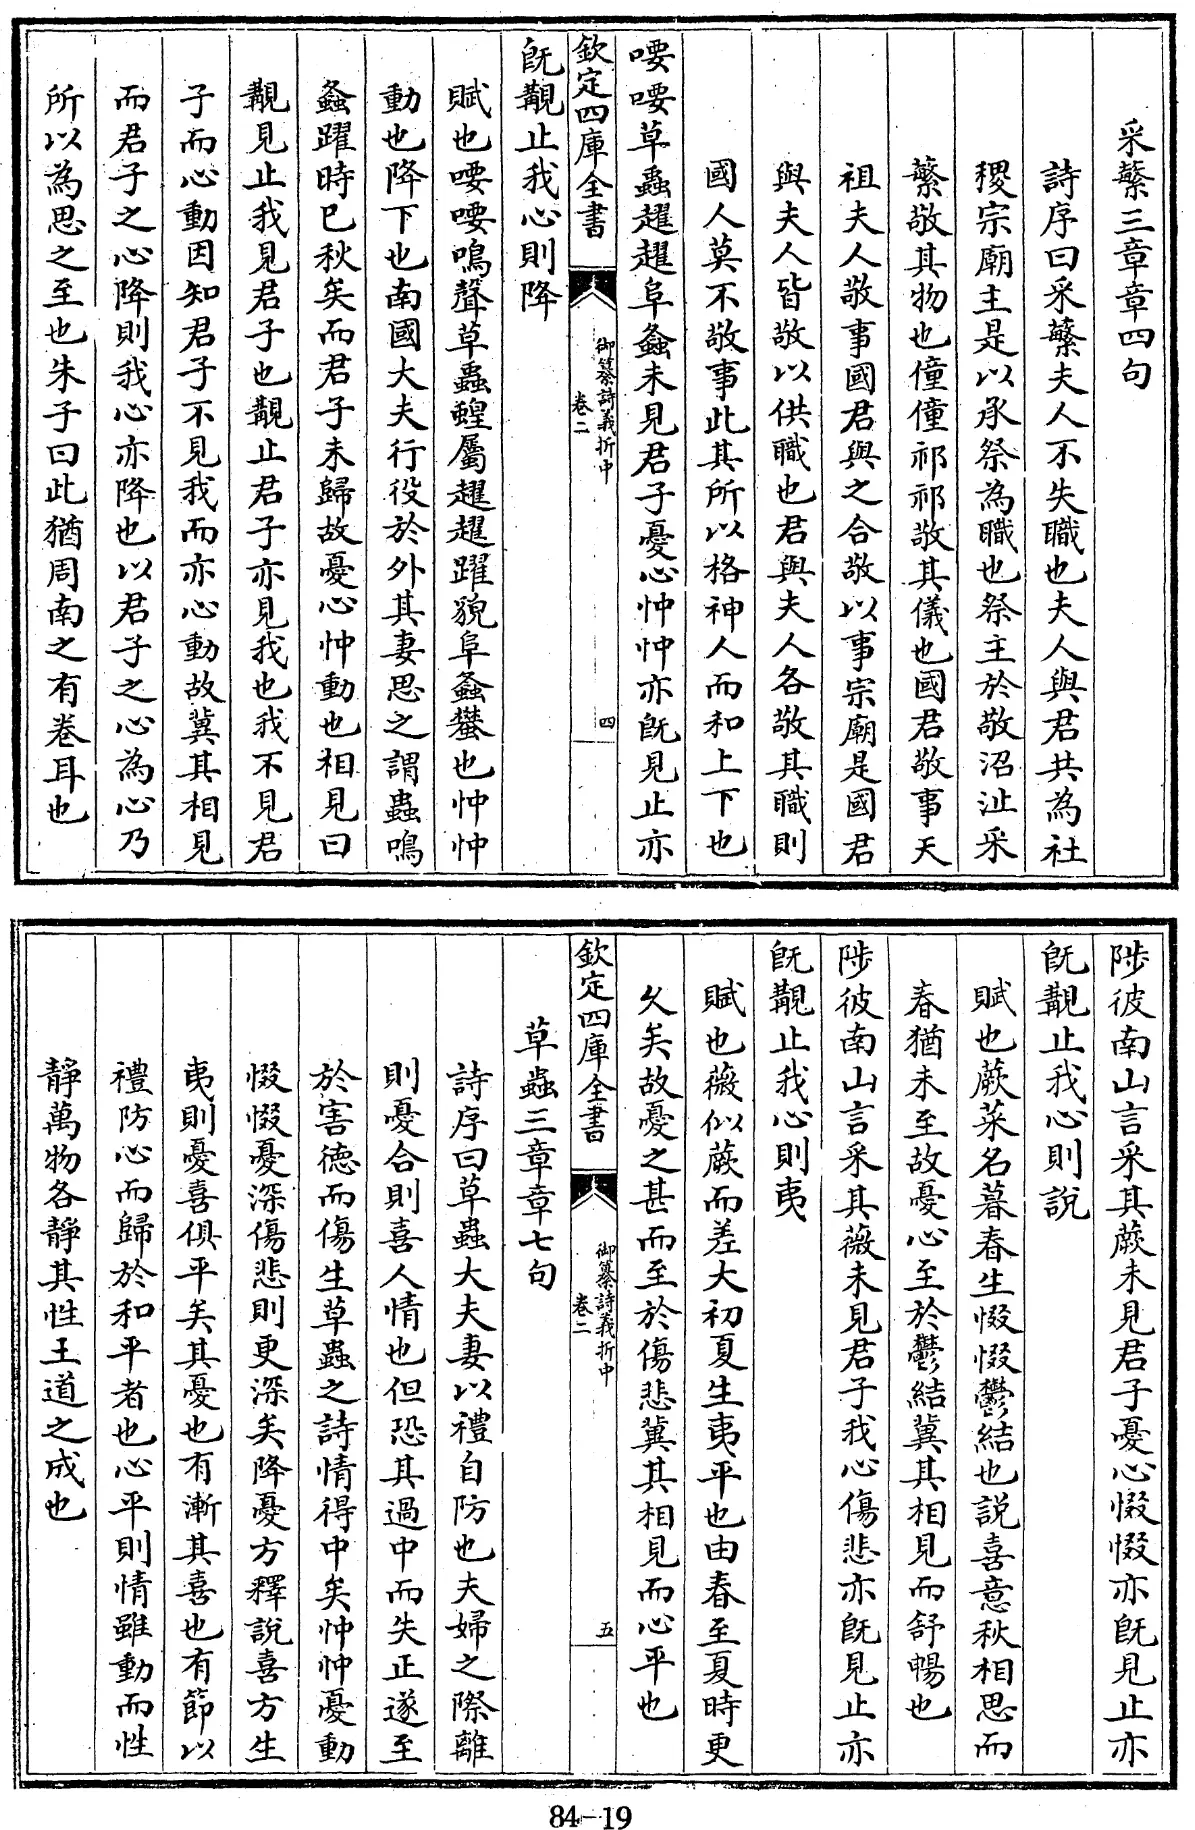 采蘩三章章四句
詩序曰采蘩夫人不失職也夫人與君共為社
稷宗廟主是以承祭為職也祭主於敬沼沚采
蘩敬其物也僮僮祁祁敬其儀也國君敬事天
祖夫人敬事國君與之合敬以事宗廟是國君
與夫人皆敬以供職也君與夫人各敬其職則
國人莫不敬事此其所以格神人而和上下也
喓喓草蟲趯趯阜螽未見君子憂心忡忡亦既見止亦
欽定四庫全書
御纂詩義折中
卷二
四
既覯止我心則降
賦也喓喓鳴聲草蟲蝗屬趯趯躍貌阜螽蠜也忡忡
動也降下也南國大夫行役於外其妻思之謂蟲鳴
螽躍時已秋矣而君子未歸故憂心忡動也相見曰
覯見止我見君子也覯止君子亦見我也我不見君
子而心動因知君子不見我而亦心動故冀其相見
而君子之心降則我心亦降也以君子之心為心乃
所以為思之至也朱子曰此猶周南之有卷耳也
陟彼南山言采其蕨未見君子憂心惙惙亦既見止亦
既覯止我心則說
賦也蕨菜名暮春生惙惙鬱結也說喜意秋相思而
春猶未至故憂心至於鬱結冀其相見而舒暢也
陟彼南山言采其薇未見君子我心傷悲亦既見止亦
既覯止我心則夷
賦也薇似蕨而差大初夏生夷平也由春至夏時更
久矣故憂之甚而至於傷悲冀其相見而心平也
欽定四庫全書
御纂詩義折中
卷二
五
草蟲三章章七句
詩序曰草蟲大夫妻以禮自防也夫婦之際離
則憂合則喜人情也但恐其過中而失正遂至
於害德而傷生草蟲之詩情得中矣忡忡憂動
惙惙憂深傷悲則更深矣降憂方釋說喜方生
夷則憂喜俱平矣其憂也有漸其喜也有節以
禮防心而歸於和平者也心平則情雖動而性
靜萬物各靜其性王道之成也
84-19